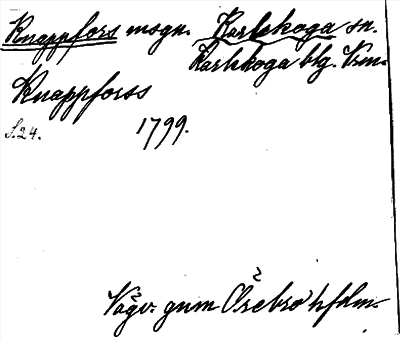 Knappfors msgn. Karlskoga sn.
Karlskoga blg. Vrm.
Knappforss
S.24. 1799.
Vägv. gnm Örebro hfdm.